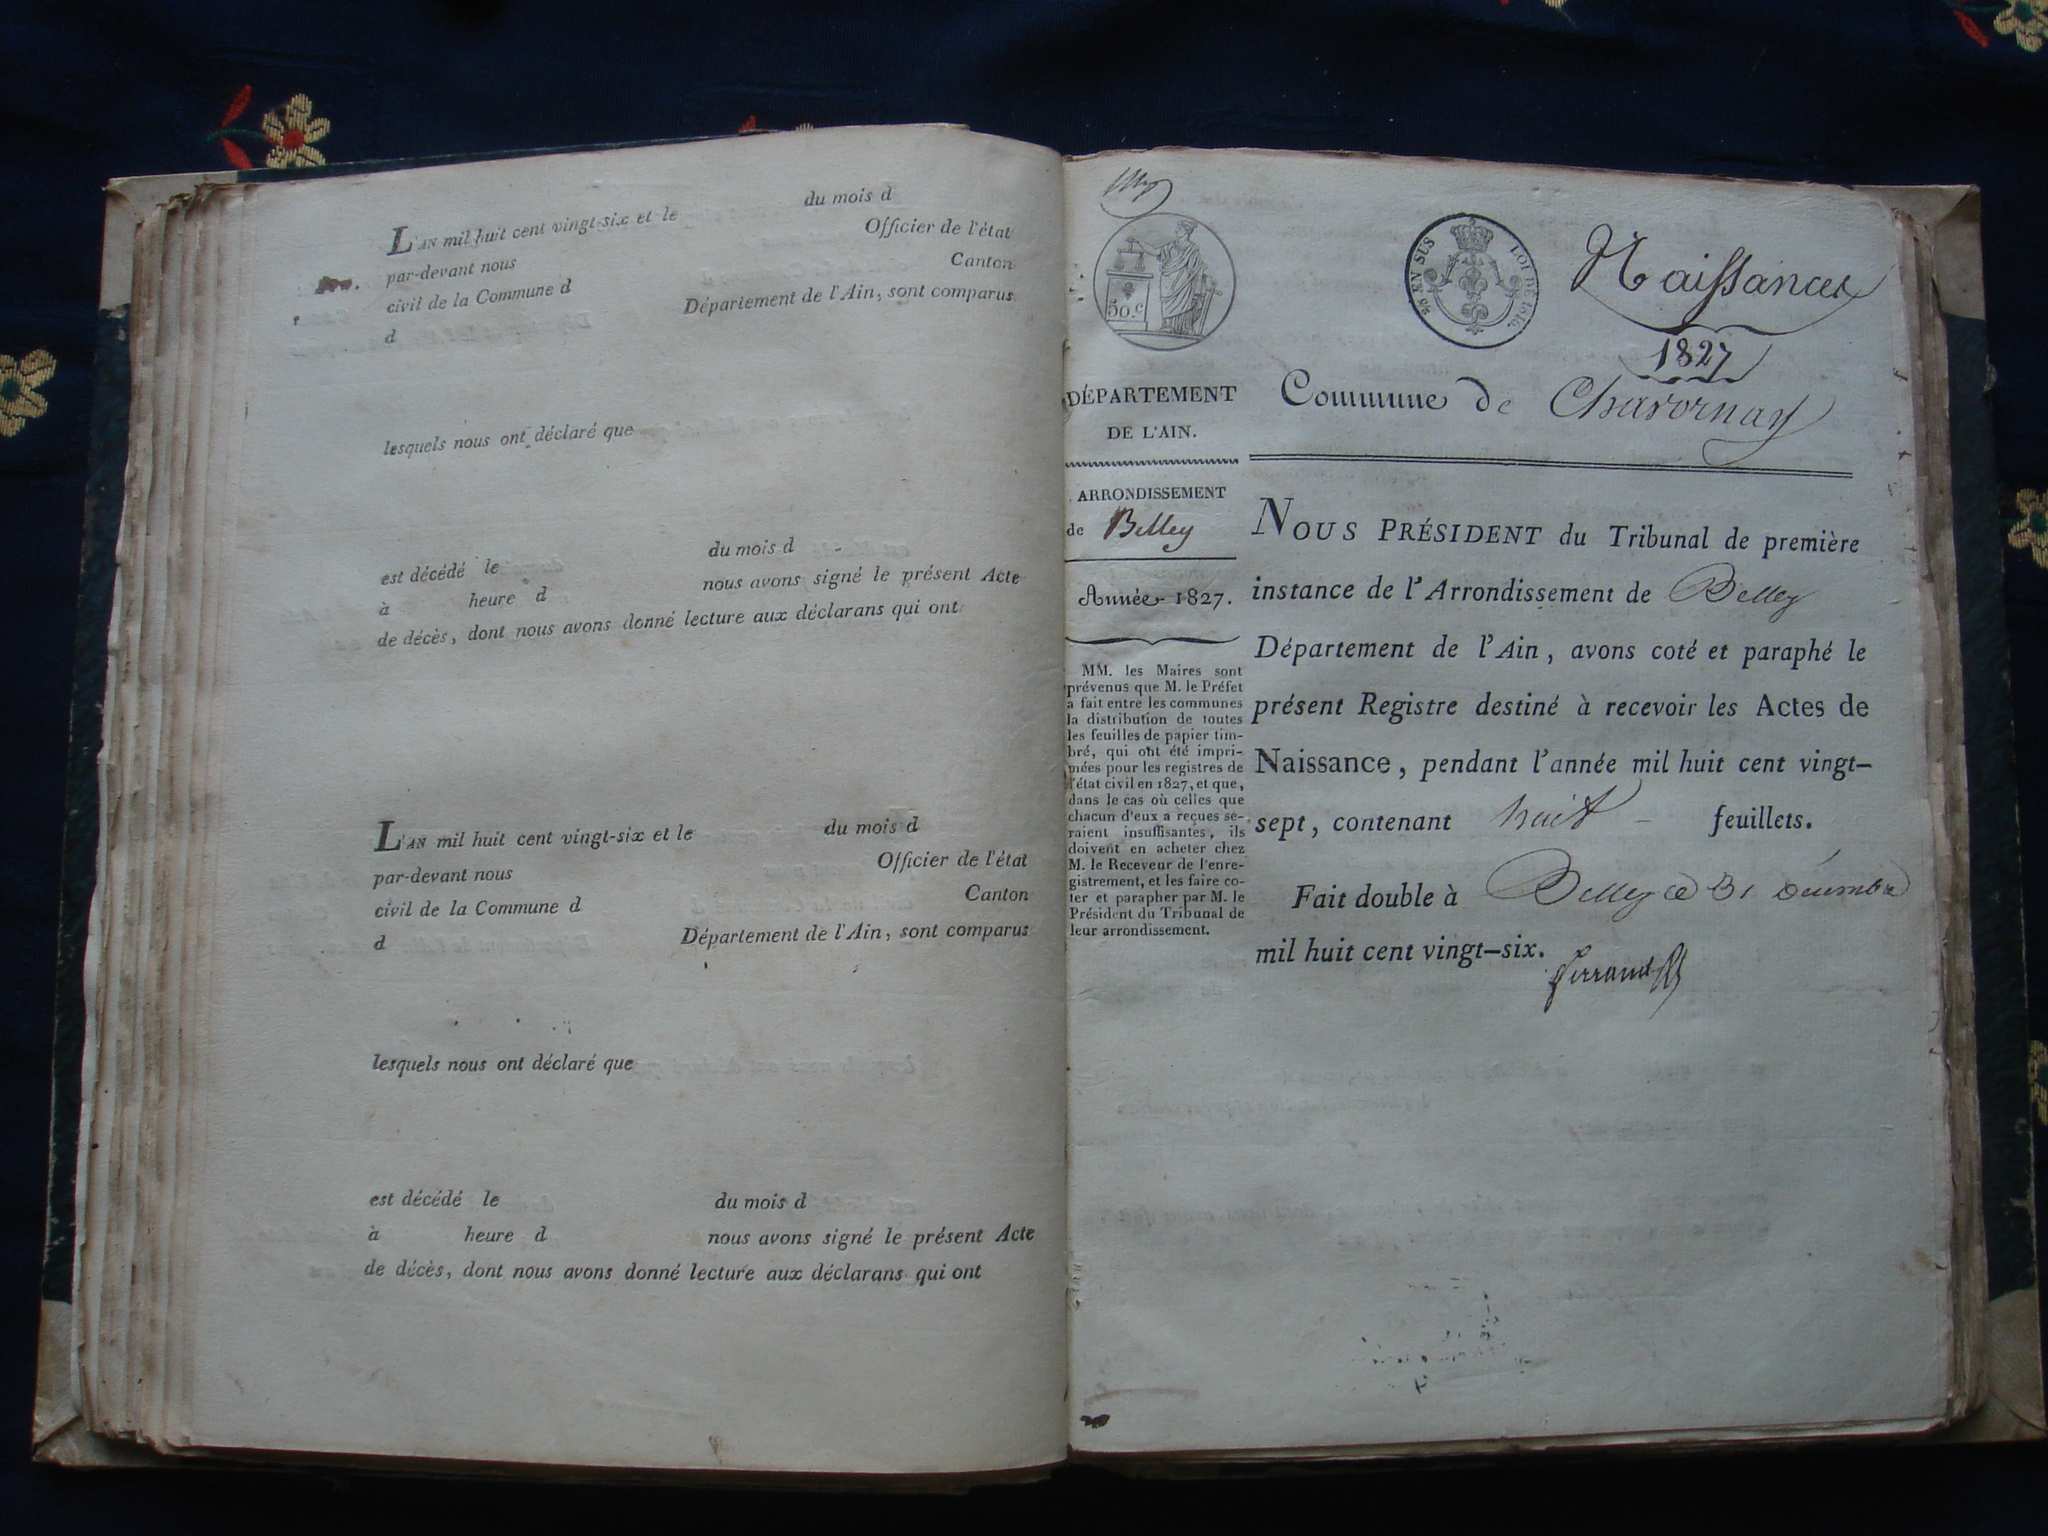 L'AN mil huit cent vingt-six et le du mois d
par-devant nous Officier de l'état
civil de la Commune d Canton
d Département de l'Ain, sont comparus
lesquels nous ont déclaré que
est décédé le du mois d
à heure d nous avons signé le présent Acte
de décès, dont nous avons donné lecture aux déclarans qui ont
L'AN mil huit cent vingt-six et le du mois d
par-devant nous Officier de l'état
civil de la Commune d Canton
d Département de l'Ain, sont comparus
lesquels nous ont déclaré que
est décédé le du mois d
à heure d nous avons signé le présent Acte
de décès, dont nous avons donné lecture aux déclarans qui ont
50.c
EN SUS LOI DE 1816.
Naissances
1827
DÉPARTEMENT
DE L'AIN.
Commune de Chavornay
ARRONDISSEMENT
de Belley
Année 1827.
MM. les Maires sont
prévenus que M. le Préfet
a fait entre les communes
la distribution de toutes
les feuilles de papier tim-
bré, qui ont été impri-
mées pour les registres de
l'état civil en 1827, et que,
dans le cas où celles que
chacun d'eux a reçues se-
raient insuffisantes, ils
doivent en acheter chez
M. le Receveur de l'enre-
gistrement, et les faire co-
ter et parapher par M. le
Président du Tribunal de
leur arrondissement.
NOUS PRÉSIDENT du Tribunal de première
instance de l'Arrondissement de Belley
Département de l'Ain, avons coté et paraphé le
présent Registre destiné à recevoir les Actes de
Naissance, pendant l'année mil huit cent vingt-
sept, contenant huit feuillets.
Fait double à Belley ce 31 Décembre
mil huit cent vingt-six.